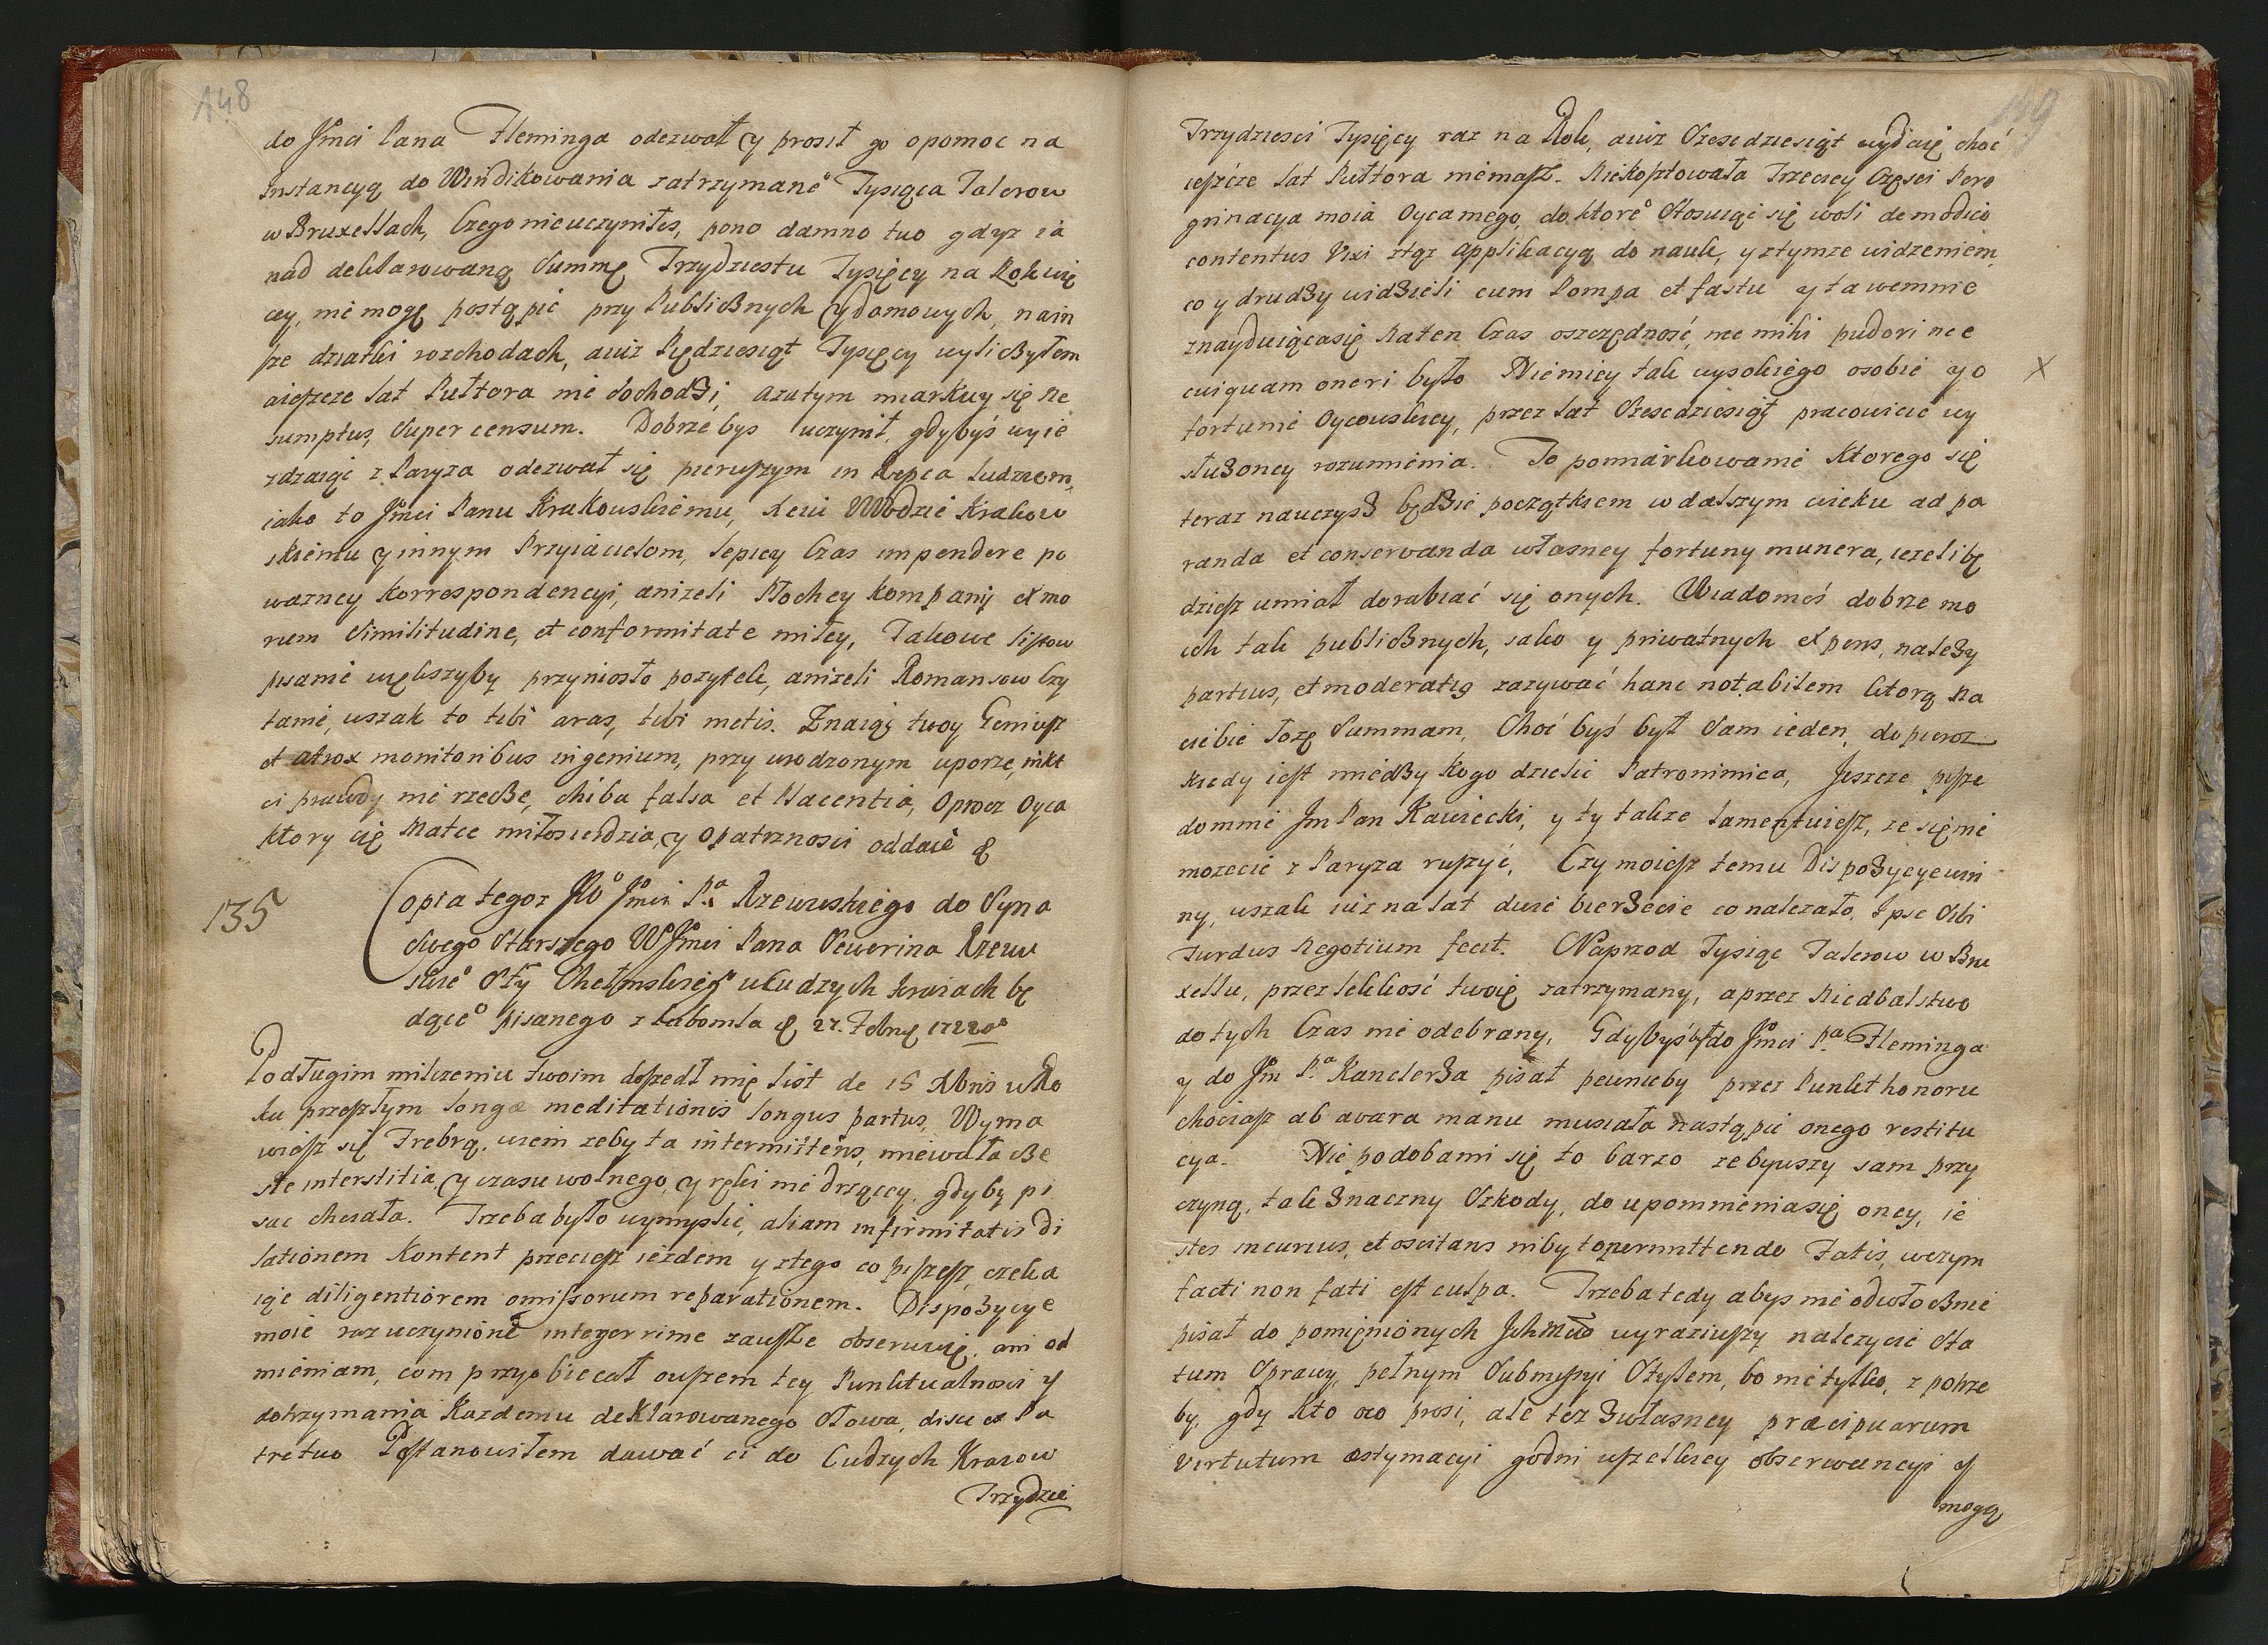 148
do Jmci Pana Fleminga odezwał y prosił go o pomoc na
Instancyą do Windikowania zatrzymaneo Tysiąca Talerow
w Bruxellach, Czego nie uczyniłes, pono damno tuo gdyz ia
nad deklarowaną Summę Trzydziestu Tysięcy na Rok wię
cey, nie mogę postąpić przy Publicznych y domowych, na in
sze dziatki rozchodach, a iuz Piędziesiąt Tysięcy wyliczyłem
a ieszcze lat Pułtora nie dochodzi, a zatym miarkuy się ne
sumptus, Super censum. Dobrze bys uczynił, gdybyś wyie
zdzaiąc z Paryza odezwał się pierwszym in Repca ludziom,
iako to Jmci Panu Krakowskiemu, Xciu Wwdzie Krakow
skiemu y innym Przyiacielom, lepiey Czas impendere po
wazney Korrespondencyi, anizeli Płochey Kompanij ex mo
rum Similitudine, et conformitate miłey, Takowe listow
pisanie większyby przyniosło pozytek, anizeli Romansow Czy
tanie, wszak to tibi aras, tibi metis. Znaiąc twoy Geniusz
et atrox monitoribus ingenium, przy urodzonym uporze, nikt
ci prawdy nie rzecze, chiba falsa et Placentia, Oprocz Oyca
ktory cię Matce miłosierdzia, y Opatrznosci oddaie &
135
Copia tegoz Jmci Pa Rzewuskiego do Syna
Swego Starszego WJmci Pana Sewerina Rzewu
skieo Sty Chełmskieg w Cudzych kraiach bę
dąceo pisanego z Lubomla & 27. Febry 1722
Po długim milczeniu twoim doszedł mię list de 15 Xbris w Ro
ku przeszłym longæ meditationis longus partus, Wyma
wiasz się Frebrą, wiem zeby ta intermittens, miewała cze
ste interstitia, y czasu wolnego, y ręki nie drzącey, gdyby pi
sac chciała. Trzeba było wymyslić, aliam infirmitatis Di
lationem Kontent przeciesz iezdem y ztego co piszesz, czeka
iąc diligentiorem omissorum reparationem. Dispozycye
moie raz uczynione integerrime zawsze obserwuię, ani od
mieniam, com przyobiecał owszem tey Punktualnosci y
dotrzymania Kazdemu deklarowanego Słowa, disce ex Pa
tre tuo Postanowiłem dawać ci do Cudzych Kraiow
Trzydzie
149
Trzydziesci Tysięcy raz na Rok, a iuz Szescdziesiąt wydaię choć
ieszcze lat Pułtora niemasz. Nie kosztowała Trzeciey Częsci Pere
grinacya moia Oyca mego, do ktoreo Stosuiąc się woli de modico
contentus Vixi ztąz applikacyą do nauk, y ztymze widzeniem,
co y drudzy widzieli cum Pompa et fastu y ta wemnie
znayduiąca się na ten Czas oszczędność, nec mihi pudori nec
cuiquam oneri było Nie miey tak wysokiego osobie y o
fortunie Oycowskiey, przez lat Szescdziesiąt pracowicie wy
słuzoney rozumienia. To pomiarkowanie Ktorego się
X
teraz nauczysz będzie początkiem w dalszym wieku ad pa
randa et conservanda własney fortuny munera, iezeli bę
dziesz umiał dorabiać się onych. Wiadomeś dobrze mo
ich tak publicznych, iako y priwatnych expens, nalezy
partius, et moderatius zazywać hanc notabilem ktorą na
ciebie łozę Summam, Choć byś był Sam ieden, do pieroz
kiedy iest miedzy kogo dzielić Patronimica, Jeszcze pisze
do mnie Jm Pan Kawiecki, y ty takze lamentuiesz, ze się nie
mozecie z Paryza ruszyć, Czy moiesz temu Dispozycye win
ny, wszak iuz na lat dwie bierzecie co nalezało, Ipse Sibi
Turdus Negotium fecit. Naprzod Tysiąc Talerow w Bru
xellu, przez lekkość twoię zatrzymany, a przez niedbalstwo
do tych Czas nie odebrany, Gdybyś był do Jmci Pa Fleminga
y do Jm Pa Kanclerza pisał pewnieby przez Punkt honoru
chociasz ab avara manu musiała nastąpić onego restitu
cya. Nie podoba mi się to barzo ze bywszy sam przy
czyną, tak znaczny Szkody, do upomnienia się oney, ie
stes incurius, et oscitans niby to permittendo Fatis, w czym
facti non fati est culpa. Trzeba tedy abys nie odwłocznie
pisał do pomienionych Jchmciow wyraziwszy nalezycie Sta
tum Sprawy, pełnym Submyssyi Stylem, bo nie tylko, z potrze
by, gdy Kto oco prosi, ale tez z własney præcipuarum
virtutum æstymacyi godni wszelkiey obserwancyi y
mogą